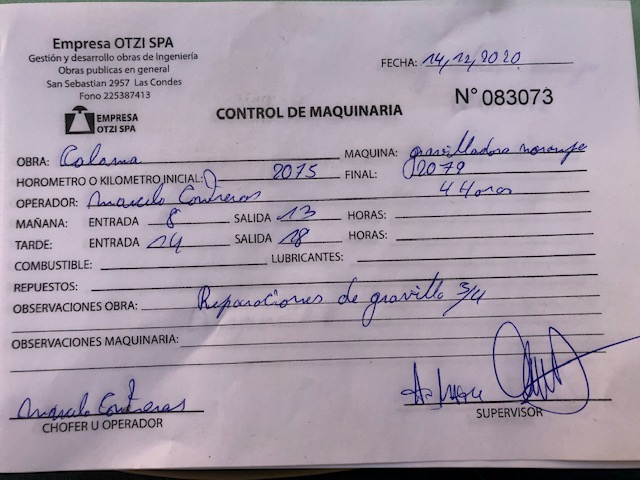 Empresa OTZI SPA
Gestión y desarrollo obras de Ingeniería
Obras publicas en general
San Sebastian 2957 Las Condes
Fono 225387413
FECHA: 14/12/2020
EMPRESA
OTZI SPA
CONTROL DE MAQUINARIA
N° 083073
OBRA: Calama MAQUINA:
HOROMETRO O KILOMETRO INICIAL: 2075 FINAL: 2079
OPERADOR: Contreras 4 Horas
MAÑANA: ENTRADA 8 SALIDA 13 HORAS:
TARDE: ENTRADA 14 SALIDA 18 HORAS:
COMBUSTIBLE: LUBRICANTES:
REPUESTOS:
OBSERVACIONES OBRA: Reparaciones de gravilla 3/4
OBSERVACIONES MAQUINARIA:
Contreras
CHOFER U OPERADOR
SUPERVISOR